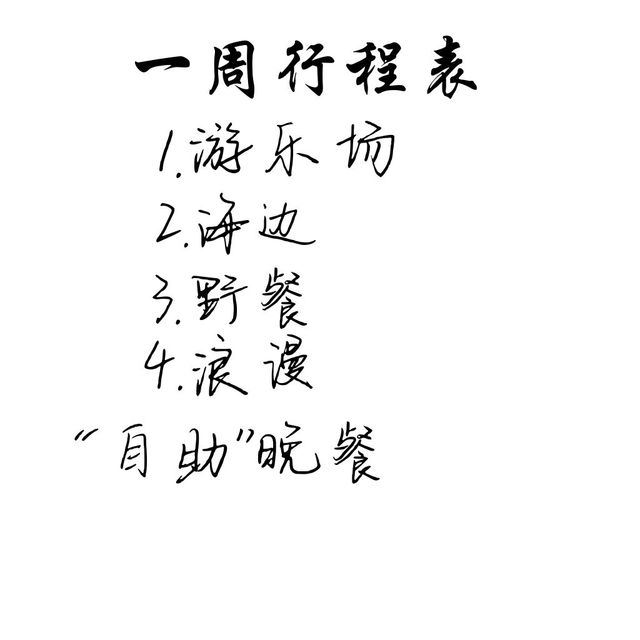 一周行程表
1.游乐场
2.海边
3.野餐
4.浪漫
“自助”晚餐